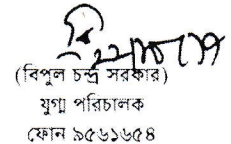 (বিপুল চন্দ্র সরকার)
যুগ্ম পরিচালক
ফোন ৯৫৬১৬৫৪